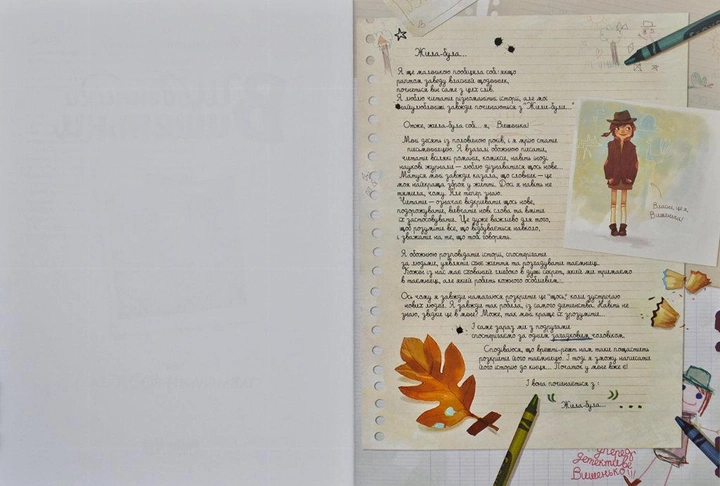 Жила-була...
Я ще маленькою пообіцяла собі: якщо
раптом заведу власний щоденник,
почнеться він саме з цих слів.
Я люблю читати різноманітні історії, але мої
найулюбленіші завжди починаються з "Жили-були..."
Отже, жила-була собі... я, Вишенька!
Мені десять із половиною років, і я мрію стати
письменницею. Я взагалі обожнюю писати,
читати всілякі романи, комікси, навіть іноді
наукові журнали — люблю дізнаватися щось нове...
Матуся мені завжди казала, що словник — це
моя найкраща зброя у житті. Досі я навіть не
тямила, чому. Але тепер знаю.
Читати — означає відкривати щось нове,
подорожувати, вивчати нові слова та вміти
їх застосовувати. Це дуже важливо для того,
щоб розуміти все, що відбувається навколо,
і зважати на те, що той говорять.
Я обожнюю розповідати історії, спостерігати
за людьми, уявляти їхнє життя та розгадувати таємниці.
Кожен із нас має схований глибоко в душі секрет, який ми тримаємо
в таємниці, але який робить кожного особливим...
Ось чому я завжди намагаюся розкрити це "щось", коли зустрічаю
нових людей. Я завжди так робила, із самого дитинства. Навіть не
знаю, звідки це в мене! Може, так мені краще їх зрозуміти...
І саме зараз ми з подругами
спостерігаємо за одним загадковим чоловіком.
Сподіваюся, що врешті-решт нам таки пощастить
розкрити його таємницю. І тоді я зможу написати
його історію до кінця... Початок у мене вже є!
І вона починається з:
"Жила-була..."...
Власне, це я,
Вишенька!
Уперед,
детективе
Вишенько!!!